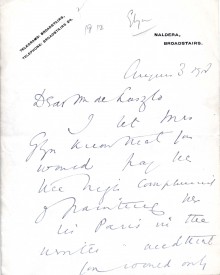 TELEGRAMS: BROADSTAIRS.
TELEPHONE: BROADSTAIRS
Glyn
NALDERA,
BROADSTAIRS.
August 3
Dear M. de Laszlo
I let Mrs
Glyn know that you
would pay her
the high compliment
of painting her
in Paris in the
winter and that
you would only